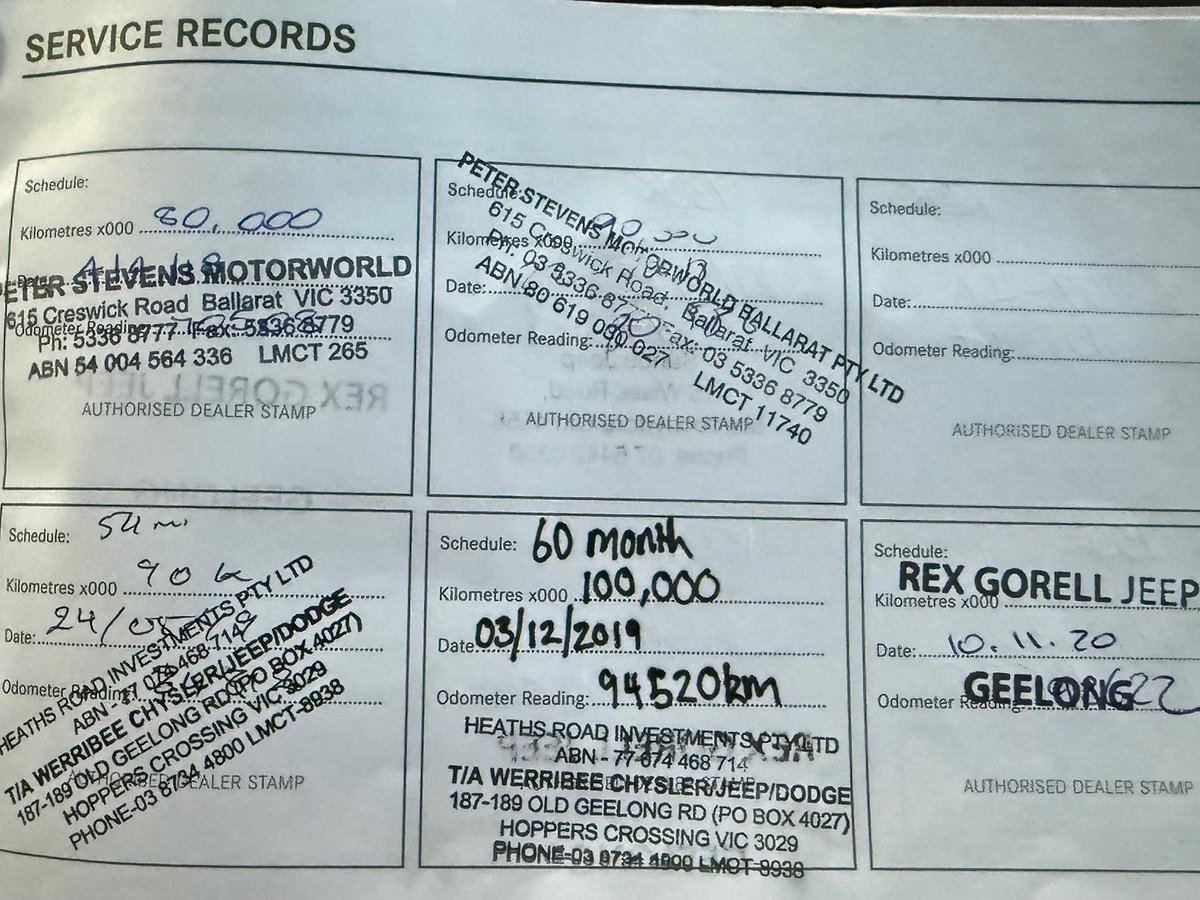 SERVICE RECORDS
Schedule:
Kilometres x000 80,000
Date:
PETER STEVENS MOTORWORLD
615 Creswick Road Ballarat VIC 3350
Odometer Reading
Ph: 5336 8777 Fax: 5336 8779
ABN 54 004 564 336 LMCT 265
REX GORELL JEEP
AUTHORISED DEALER STAMP
PETER STEVENS MOTORWORLD BALLARAT PTY LTD
615 Creswick Road, Ballarat VIC 3350
Ph: 03 5336 8777 Fax: 03 5336 8779
ABN 80 619 090 027 LMCT 11740
Schedule:
Kilometres x000
Date:
Odometer Reading:
AUTHORISED DEALER STAMP
Schedule:
Kilometres x000
Date:
Odometer Reading:
AUTHORISED DEALER STAMP
Schedule: 54 m
Kilometres x000 90k
Date: 24/
Odometer Reading
HEATHS ROAD INVESTMENTS PTY LTD
T/A WERRIBEE CHYSLER/JEEP/DODGE
187-189 OLD GEELONG RD (PO BOX 4027)
HOPPERS CROSSING VIC 3029
PHONE-03 8734 4800 LMCT-8938
AUTHORISED DEALER STAMP
Schedule: 60 month
Kilometres x000 100,000
Date 03/12/2019
Odometer Reading: 94520km
HEATHS ROAD INVESTMENTS PTY LTD
ABN - 77 074 468 714
T/A WERRIBEE CHYSLER/JEEP/DODGE
187-189 OLD GEELONG RD (PO BOX 4027)
HOPPERS CROSSING VIC 3029
PHONE-03 8734 4800 LMCT-8938
Schedule:
REX GORELL JEEP
Kilometres x000
Date: 10.11.20
GEELONG
Odometer Reading:
AUTHORISED DEALER STAMP